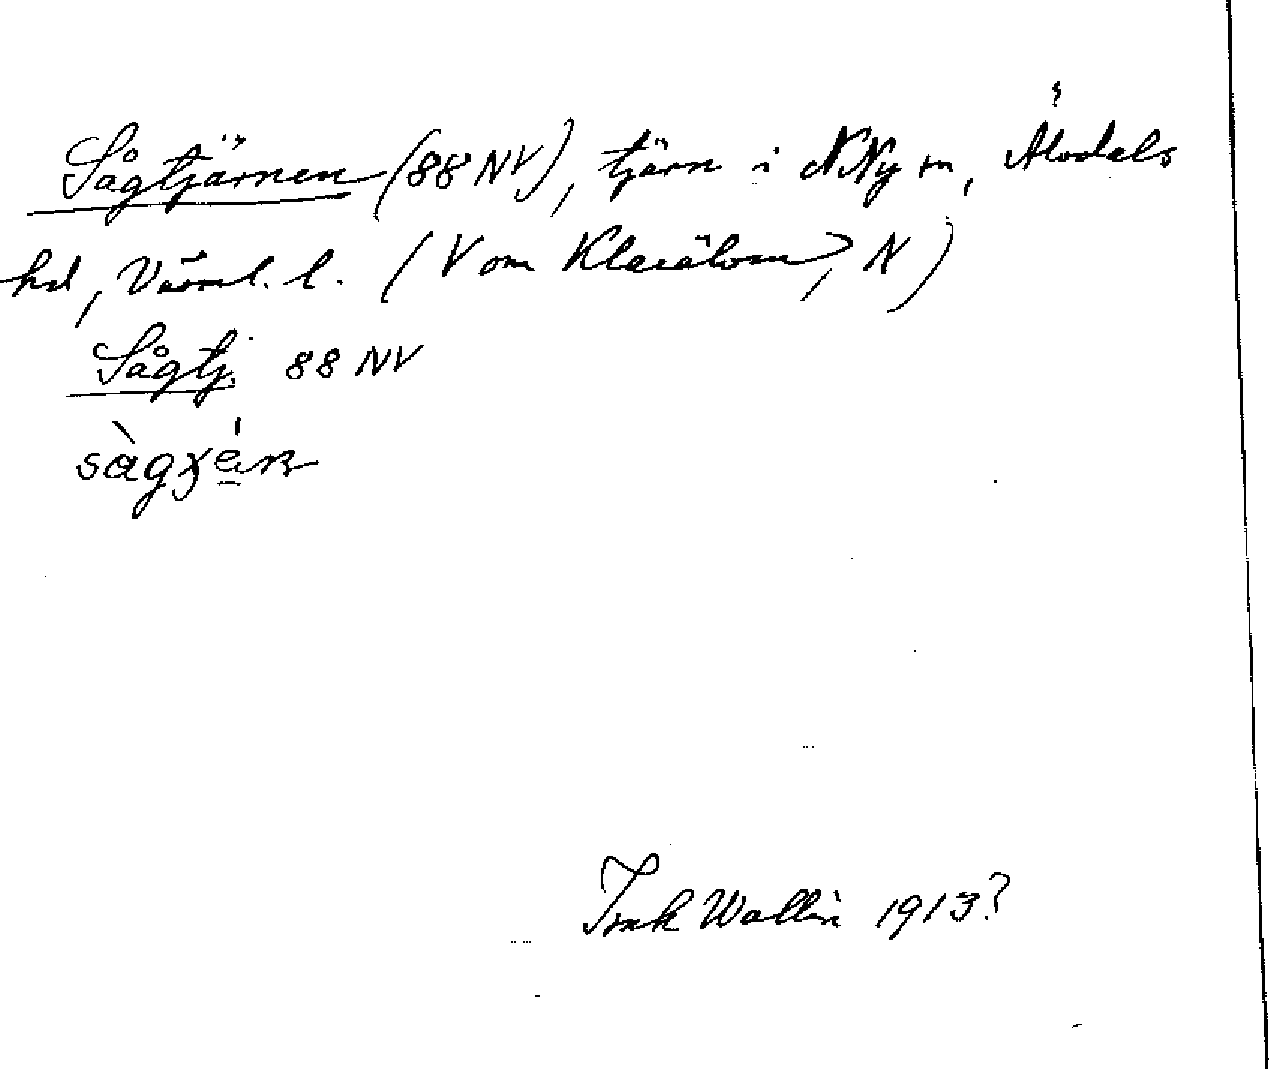 Sågtjärnen (88 NV), tjärn i N Ny m, Älvdals
hd, Värml. l. (V om Klarälven, N)
Sågtj. 88 NV
Isak Wallin 1913?